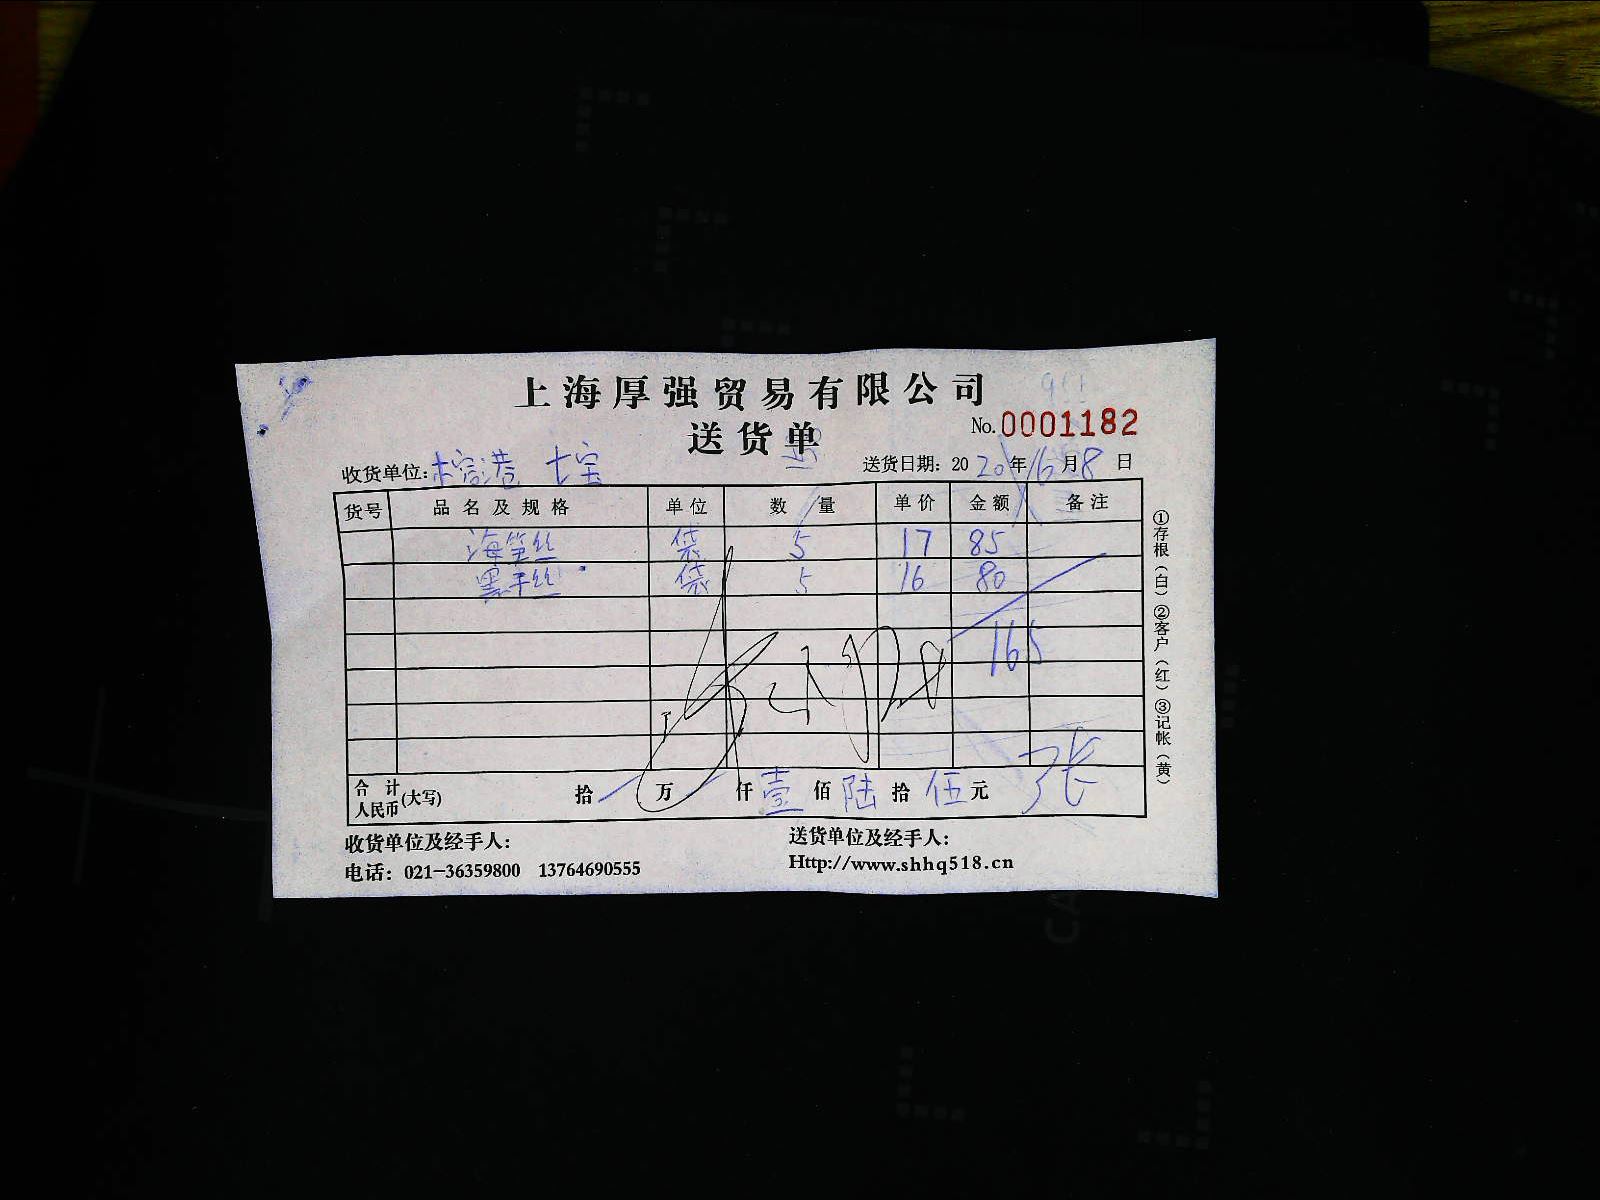 上海厚强贸易有限公司
No.0001182
送货单
收货单位: 榕港 七宝 送货日期: 2020年6月8日
货号 品名及规格 单位 数量 单价 金额 备注
海笋丝 袋 5 17 85
黑手丝 袋 5 16 80
165
合计人民币(大写) 拾 万 仟 壹 佰 陆 拾 伍 元 张
收货单位及经手人: 送货单位及经手人:
电话: 021-36359800 13764690555 Http://www.shhq518.cn
①存根(白) ②客户(红) ③记帐(黄)